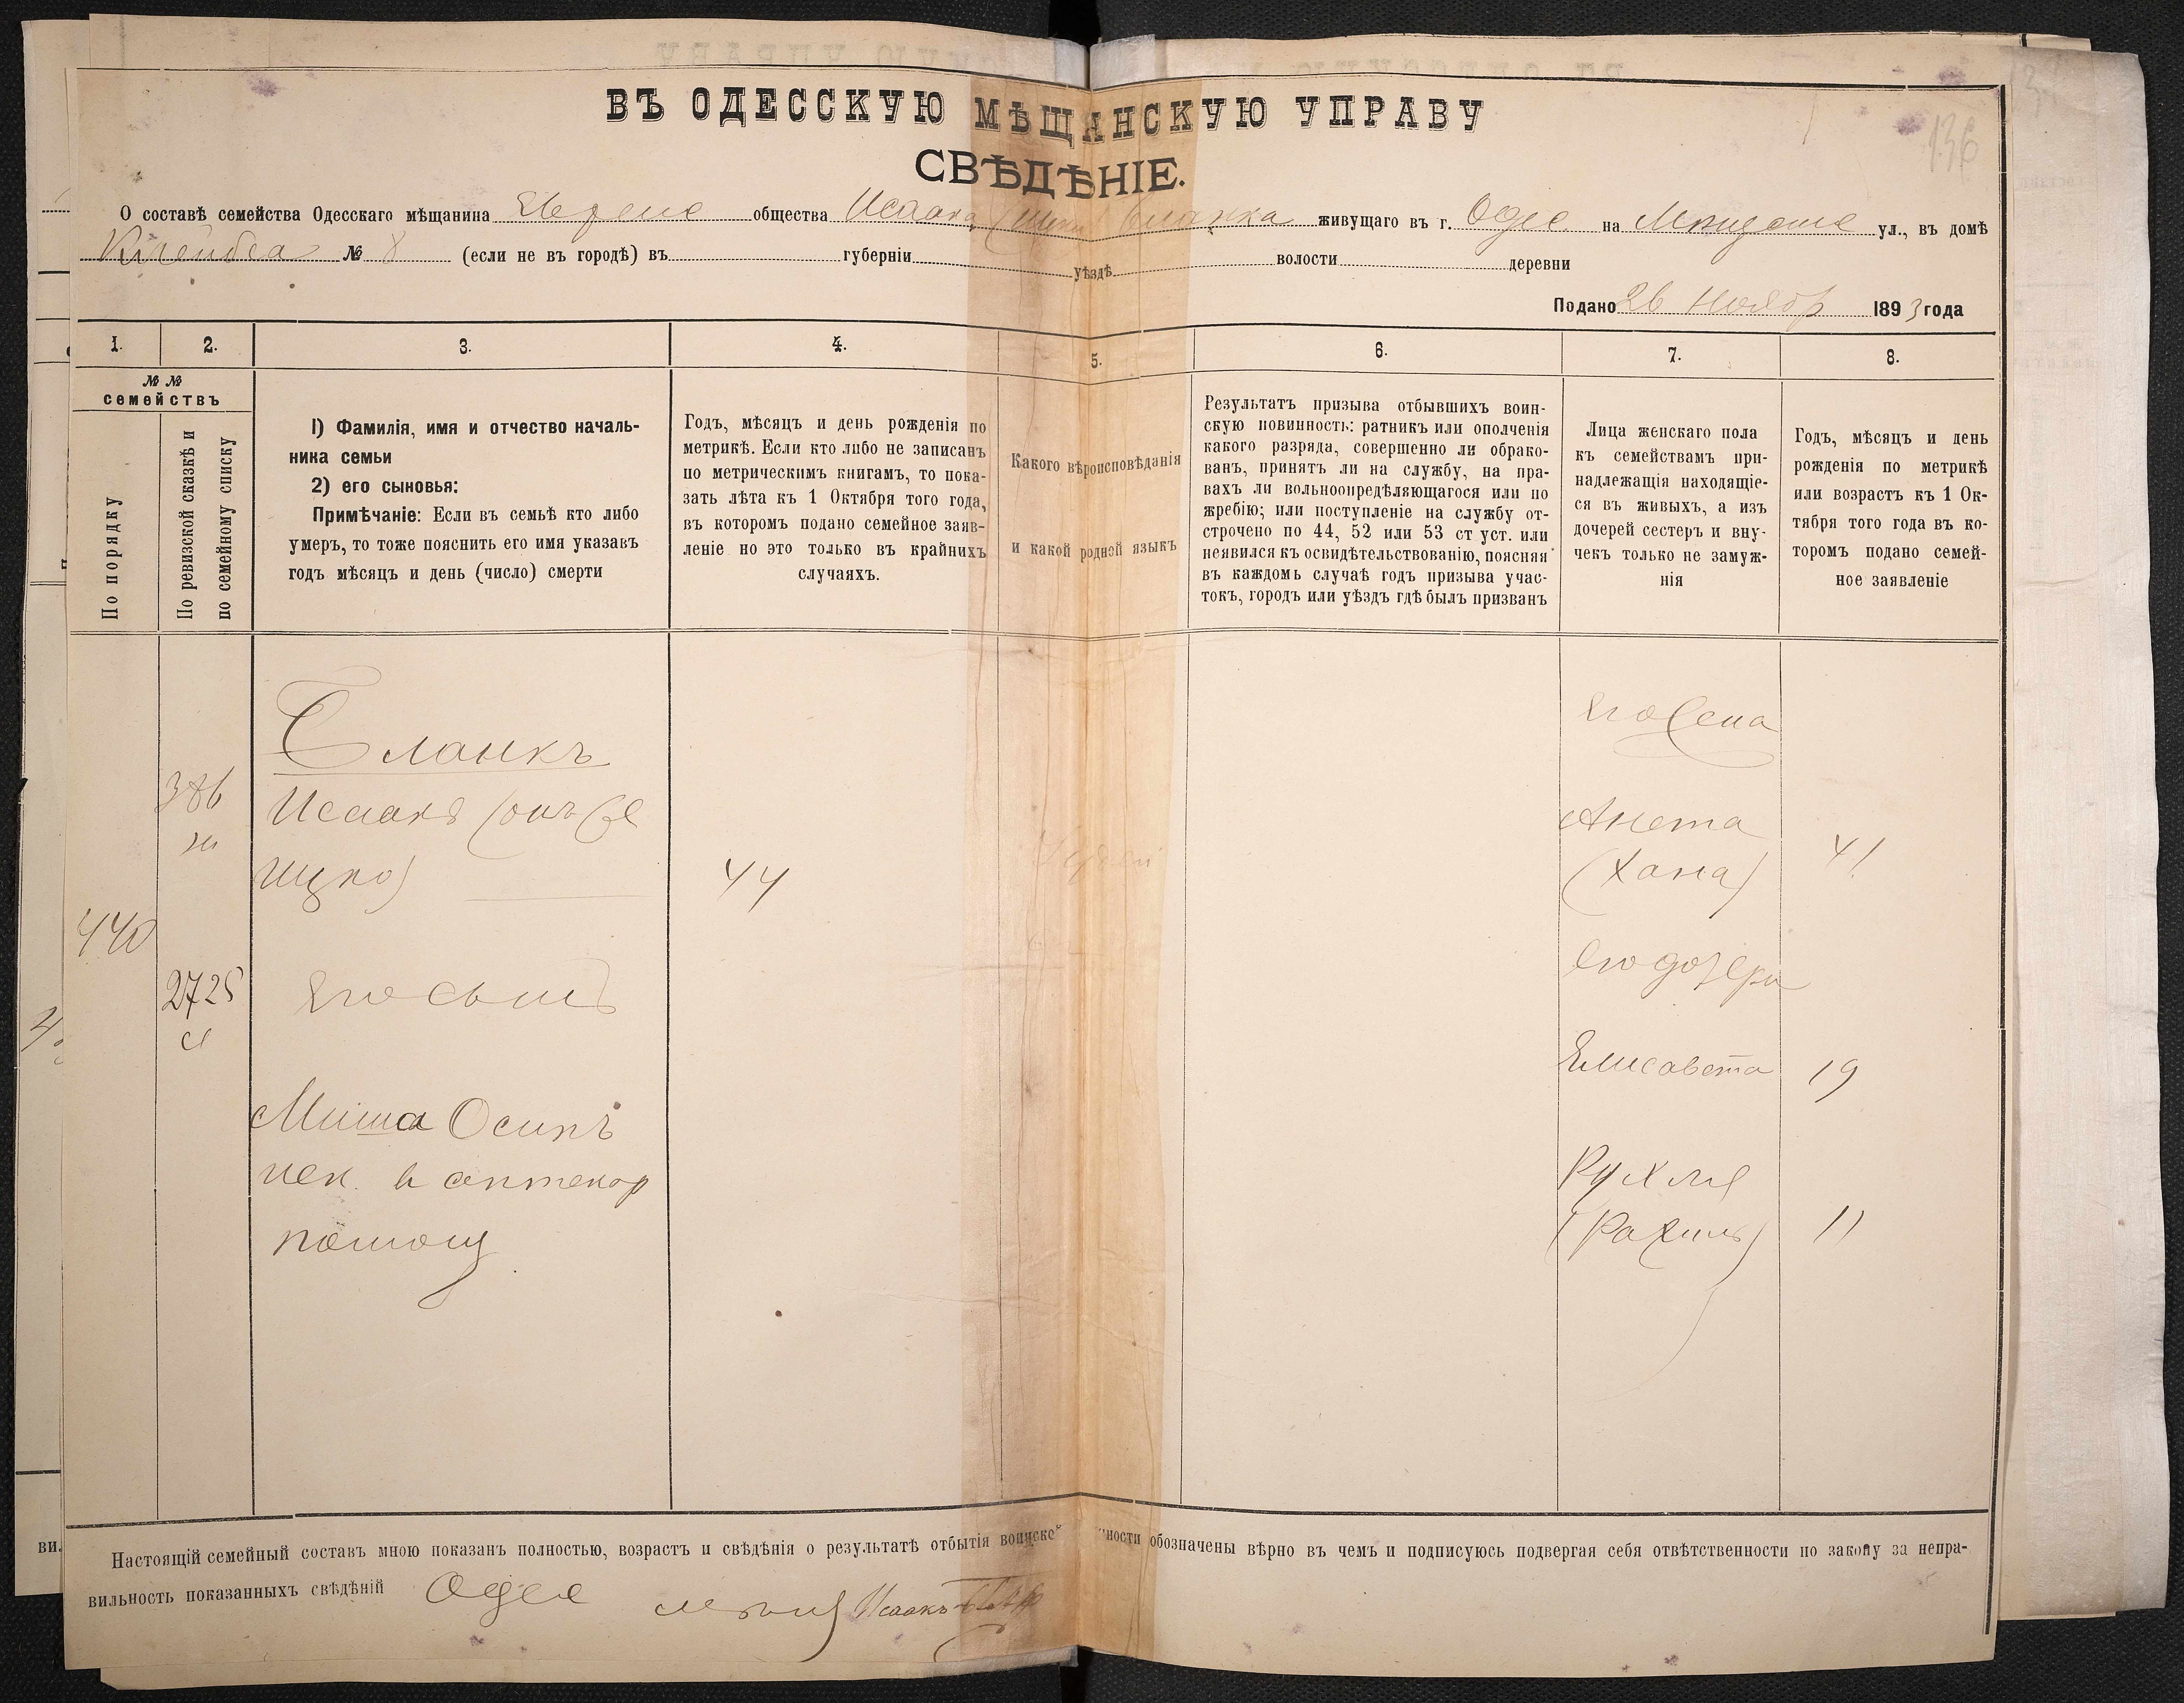 ВЪ ОДЕССКУЮ МѢЩАНСКУЮ УПРАВУ
СВѢДѢНІЕ.
136
О составѣ семейства Одесскаго мѣщанина общества Исаака Бланка живущаго въ г. Одес. на ул., въ домѣ
№ 8 (если не въ городѣ) въ губерніи уѣздѣ волости деревни
Подано 26 Ноябр 1893 года
1. 2. 3. 4. 5. 6. 7. 8.
№ №
семействъ
По порядку
По ревизской сказкѣ и
по семейному списку
1) Фамилія, имя и отчество началь-
ника семьи
2) его сыновья:
Примѣчаніе: Если въ семьѣ кто либо
умеръ, то тоже пояснить его имя указавъ
годъ мѣсяцъ и день (число) смерти
Годъ, мѣсяцъ и день рожденія по
метрикѣ. Если кто либо не записанъ
по метрическимъ книгамъ, то пока-
зать лѣта къ 1 Октября того года,
въ которомъ подано семейное заяв-
леніе но это только въ крайнихъ
случаяхъ.
Какого вѣроисповѣданія
и какой родной языкъ
Результатъ призыва отбывшихъ воин-
скую повинность: ратникъ или ополченія
какого разряда, совершенно ли обрако-
ванъ, принятъ ли на службу, на пра-
вахъ ли вольноопредѣляющагося или по
жребію; или поступленіе на службу от-
строчено по 44, 52 или 53 ст уст. или
неявился къ освидѣтельствованію, поясняя
въ каждомъ случаѣ годъ призыва учас-
токъ, городъ или уѣздъ гдѣ былъ призванъ
Лица женскаго пола
къ семействамъ при-
надлежащія находящіе-
ся въ живыхъ, а изъ
дочерей сестеръ и вну-
чекъ только не замуж-
нія
Годъ, мѣсяцъ и день
рожденія по метрикѣ
или возрастъ къ 1 Ок-
тября того года въ ко-
торомъ подано семей-
ное заявленіе
440
386
2725
Бланкъ
Исаакъ (онъ же
Ицко)
44
Его сынъ
Миша Осипъ
помощ
Его жена
Анета
(Хана)
41
Его дочери
Елисавета 19
Рухля
(Рахиль) 11
Настоящій семейный составъ мною показанъ полностью, возрастъ и свѣдѣнія о результатѣ отбытія воинской обозначены вѣрно въ чемъ и подписуюсь подвергая себя отвѣтственности по закону за непра-
вильность показанныхъ свѣдѣній Одес Исаакъ